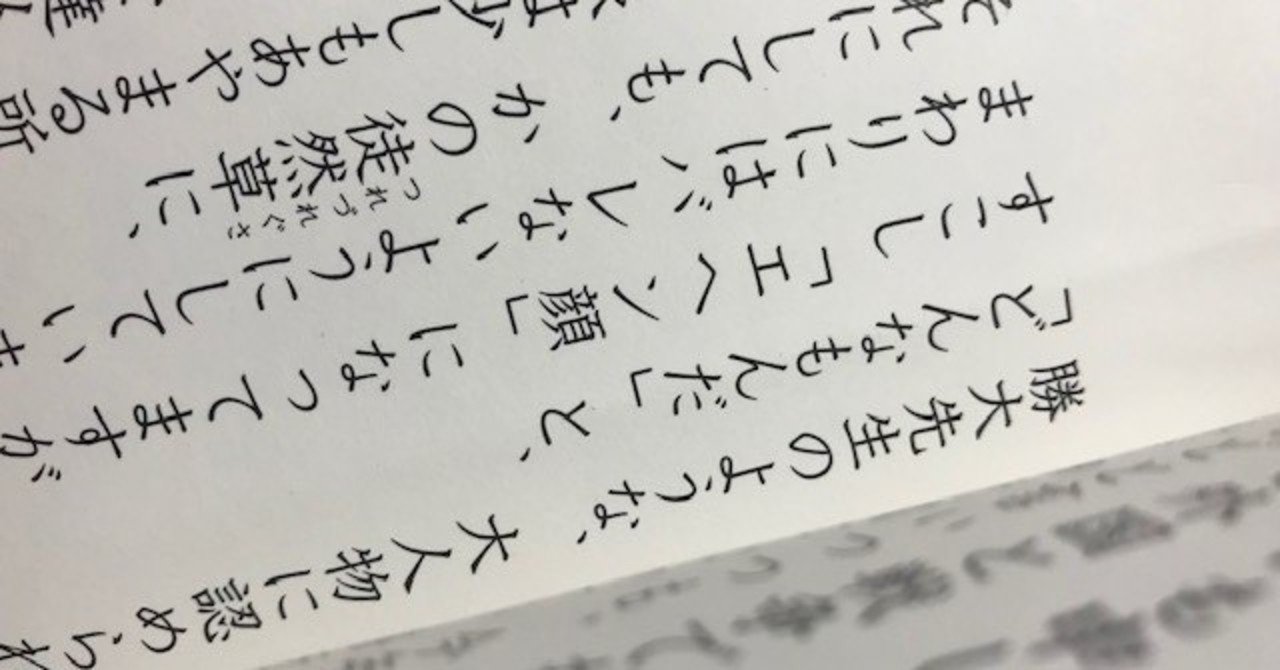 勝大先生のような、大人物に認められ
「どんなもんだ」と、
すこし「エヘン顔」になってますが
まわりにはバレないようにしていま
それにしても、かの徒然草に、
つれづれぐさ
は少しもあやまる所